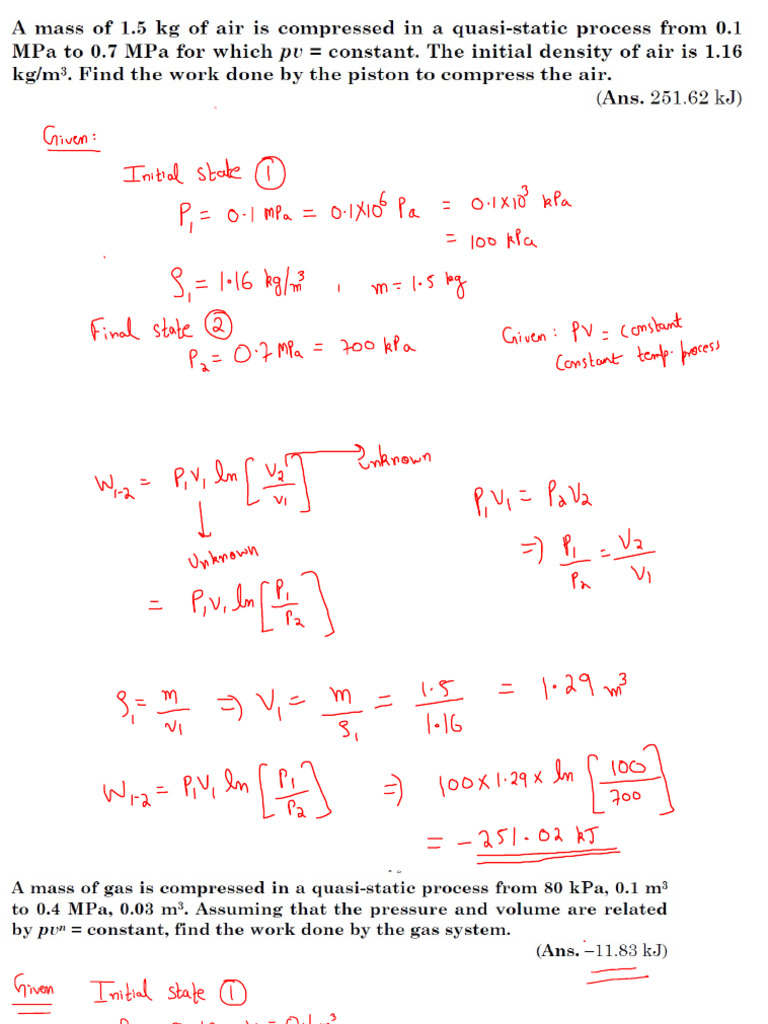 A mass of 1.5 kg of air is compressed in a quasi-static process from 0.1
MPa to 0.7 MPa for which pv = constant. The initial density of air is 1.16
kg/m³. Find the work done by the piston to compress the air.
(Ans. 251.62 kJ)
Given:
Initial state ①
P₁ = 0.1 MPa = 0.1×10⁶ Pa = 0.1×10³ kPa
= 100 kPa
ρ₁ = 1.16 kg/m³ , m = 1.5 kg
Final state ②
P₂ = 0.7 MPa = 700 kPa
Given: PV = Constant
Constant temp. process
W₁₋₂ = P₁V₁ ln [V₂/V₁] → Unknown
↓
Unknown
P₁V₁ = P₂V₂
⇒ P₁/P₂ = V₂/V₁
= P₁V₁ ln [P₁/P₂]
ρ₁ = m/V₁ ⇒ V₁ = m/ρ₁ = 1.5/1.16 = 1.29 m³
W₁₋₂ = P₁V₁ ln [P₁/P₂] ⇒ 100×1.29× ln [100/700]
= -251.02 kJ
A mass of gas is compressed in a quasi-static process from 80 kPa, 0.1 m³
to 0.4 MPa, 0.03 m³. Assuming that the pressure and volume are related
by pvⁿ = constant, find the work done by the gas system.
(Ans. –11.83 kJ)
Given Initial state ①